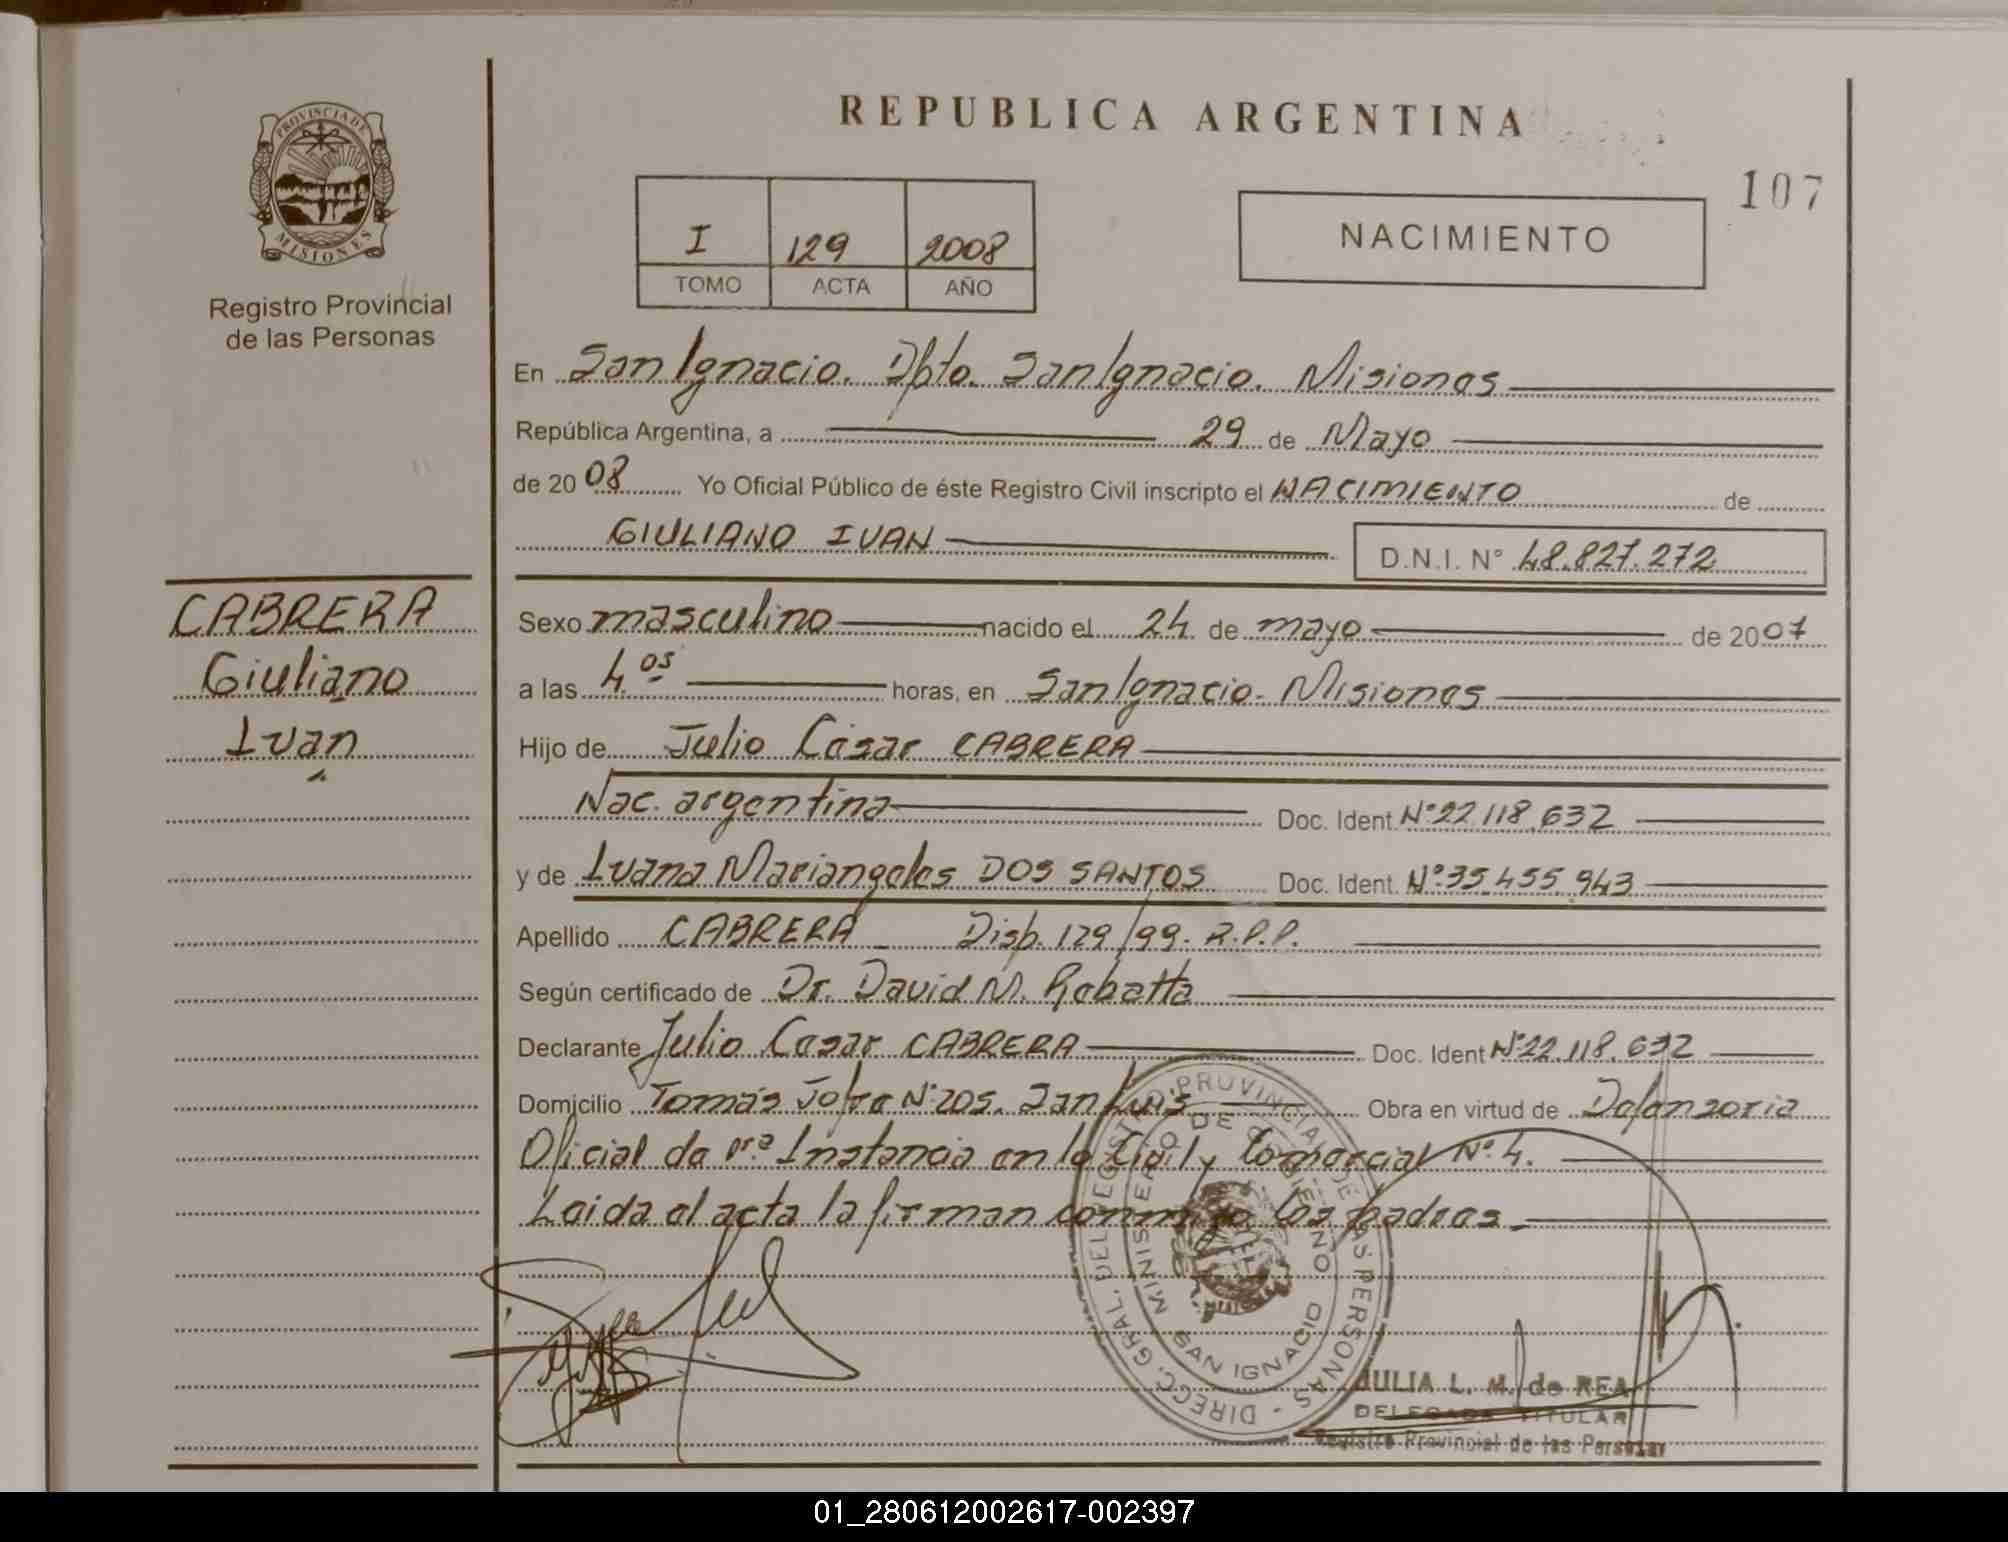 REPUBLICA ARGENTINA
107
PROVINCIA DE
MISIONES
Registro Provincial
de las Personas
I 129 2008
TOMO ACTA AÑO
NACIMIENTO
En San Ignacio. Dpto. San Ignacio. Misiones
República Argentina, a 29 de Mayo
de 20 08 Yo Oficial Público de éste Registro Civil inscripto el NACIMIENTO de
GIULIANO IVAN D.N.I. N° 48.827.272
CABRERA
Giuliano
Ivan
Sexo masculino nacido el 24 de mayo de 20 07
a las 4.05 horas, en San Ignacio - Misiones
Hijo de Julio César CABRERA
Nac. argentina Doc. Ident. N° 22.118.632
y de Luana Mariangeles DOS SANTOS Doc. Ident. N° 35.455.943
Apellido CABRERA Disp. 129/99. R.P.P.
Según certificado de Dr. David M. Rebatta
Declarante Julio Cesar CABRERA Doc. Ident N° 22.118.632
Domicilio Tomás N° 205. San Luis Obra en virtud de Defensoria
Oficial de 1ra Instancia en lo Civil y Comercial N° 4.
Leida el acta la firman conmigo los padres.
DIRECC. GRAL. DEL REGISTRO PROVINCIAL DE LAS PERSONAS
MINISTERIO DE GOBIERNO
SAN IGNACIO
JULIA L. M. de REA
DELEGADA TITULAR
Registro Provincial de las Personas
01_280612002617-002397